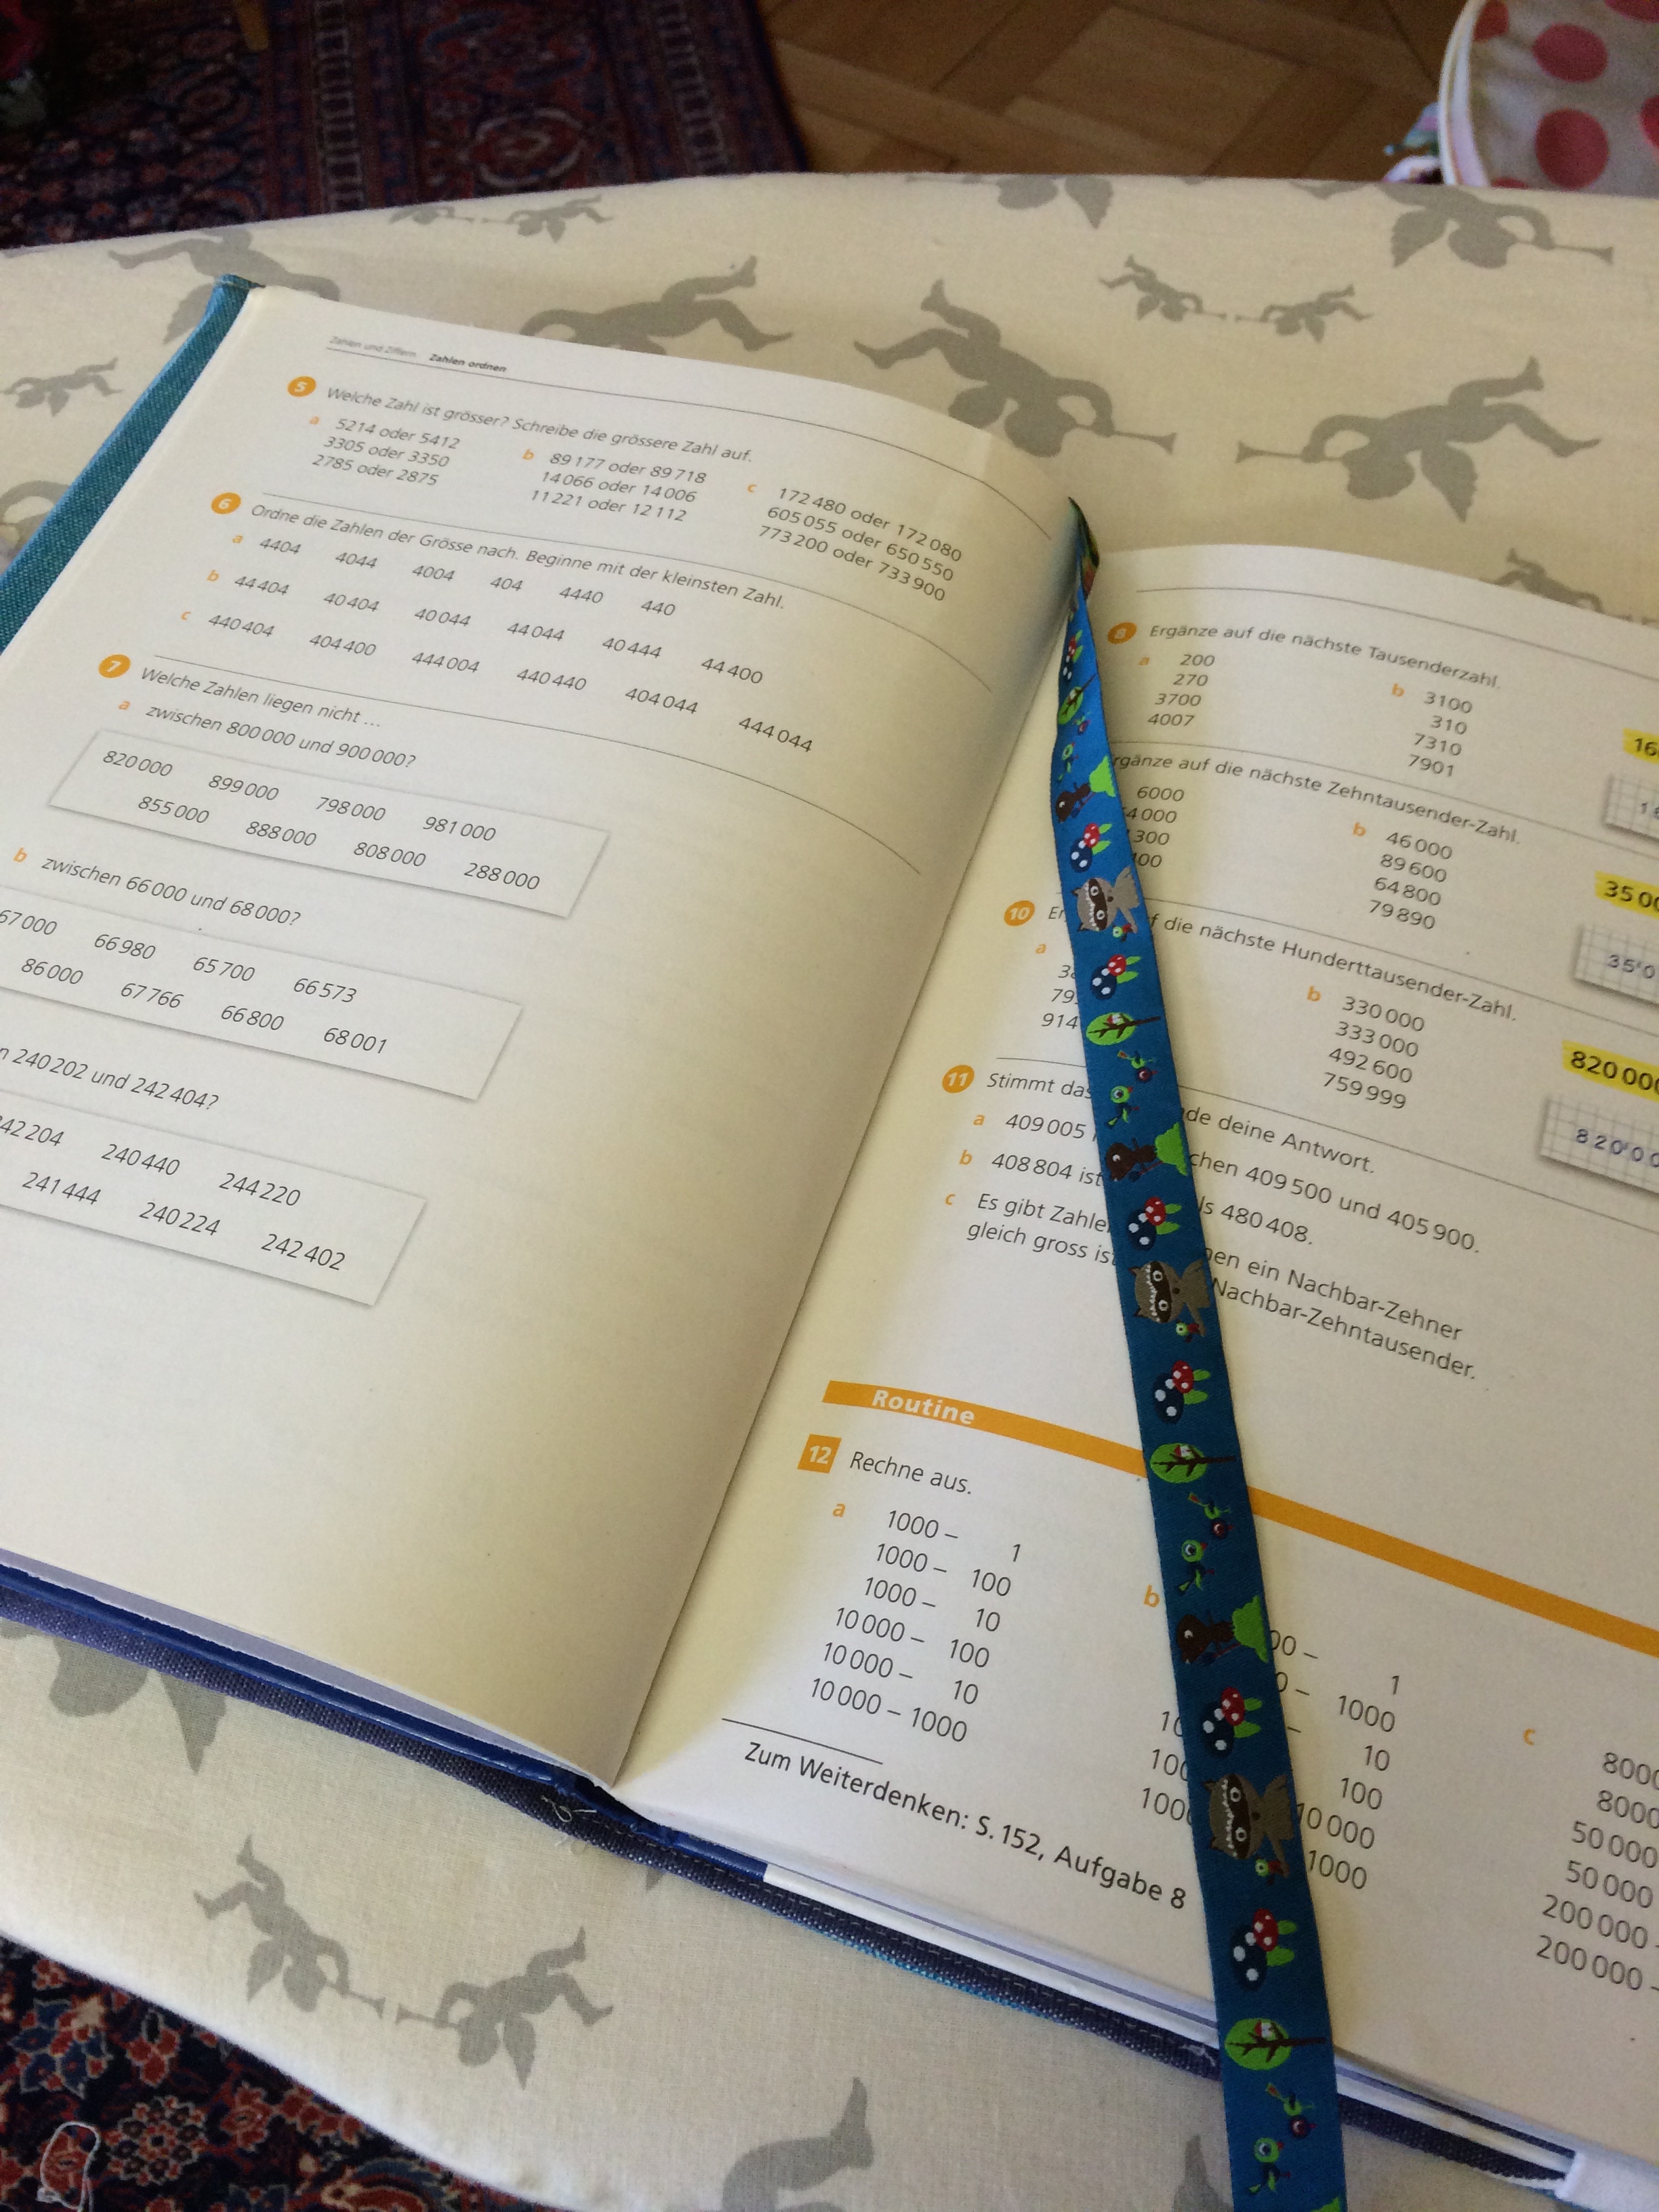 Zahlen und Ziffern Zahlen ordnen
5 Welche Zahl ist grösser? Schreibe die grössere Zahl auf.
a 5214 oder 5412
3305 oder 3350
2785 oder 2875
b 89 177 oder 89 718
14 066 oder 14 006
11 221 oder 12 112
c 172 480 oder 172 080
605 055 oder 650 550
773 200 oder 733 900
6 Ordne die Zahlen der Grösse nach. Beginne mit der kleinsten Zahl.
a 4404 4044 4004 404 4440 440
b 44 404 40 404 40 044 44 044 40 444 44 400
c 440 404 404 400 444 004 440 440 404 044 444 044
7 Welche Zahlen liegen nicht ...
a zwischen 800 000 und 900 000?
820 000 899 000 798 000 981 000
855 000 888 000 808 000 288 000
b zwischen 66 000 und 68 000?
67 000 66 980 65 700 66 573
86 000 67 766 66 800 68 001
240 202 und 242 404?
240 440 244 220
241 444 240 224 242 402
8 Ergänze auf die nächste Tausenderzahl.
a 200
270
3700
4007
b 3100
310
7310
7901
auf die nächste Zehntausender-Zahl.
6000
b 46 000
89 600
64 800
79 890
10 die nächste Hunderttausender-Zahl.
a
b 330 000
333 000
492 600
759 999
11 Stimmt deine Antwort.
a 409 005 409 500 und 405 900.
b 408 804 ist 480 408.
c Es gibt ein Nachbar-Zehner
gleich gross Nachbar-Zehntausender.
Routine
12 Rechne aus.
a 1000 – 1
1000 – 100
1000 – 10
10 000 – 100
10 000 – 10
10 000 – 1000
b
– 1
– 1000
– 10
100
10 000
1000
c
50 000
50 000
200 000 –
200 000 –
Zum Weiterdenken: S. 152, Aufgabe 8